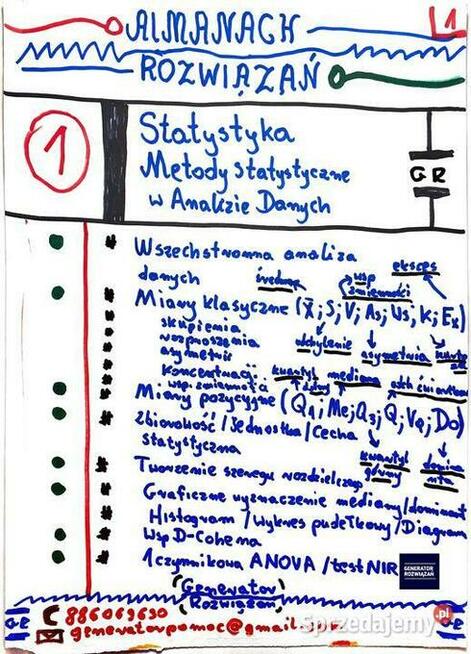 1
ALMANACH
ROZWIĄZAŃ
1
Statystyka
Metody statystyczne
w Analizie Danych
GR
Wszechstronna analiza
danych
średnia
wsp zmienności
eksces
Miary klasyczne (x̄; S; V; As; Ws, K; Ex)
skupienia
rozproszenia
asymetrii
koncentracji
odchylenie
asymetria
kurtoza
wsp. zmienności
kwartyl dolny
mediana
odch ćwiartkowe
Miary pozycyjne (Q1; Me; Q3; Q; VQ; Do)
Zbiorowość / Jednostka / Cecha
statystyczna
kwartyl górny
dominanta
Tworzenie szeregu rozdzielczego
Graficzne wyznaczenie mediany/dominant
Histogram / Wykres pudełkowy / Diagram
Wsp D-Cohena
1 czynnikowa ANOVA / test NIR
GENERATOR
ROZWIĄZAŃ
(Generator
Rozwiązań)
GR
886069690
generatorpomoc@gmail.com
GR
Sprzedajemy.pl